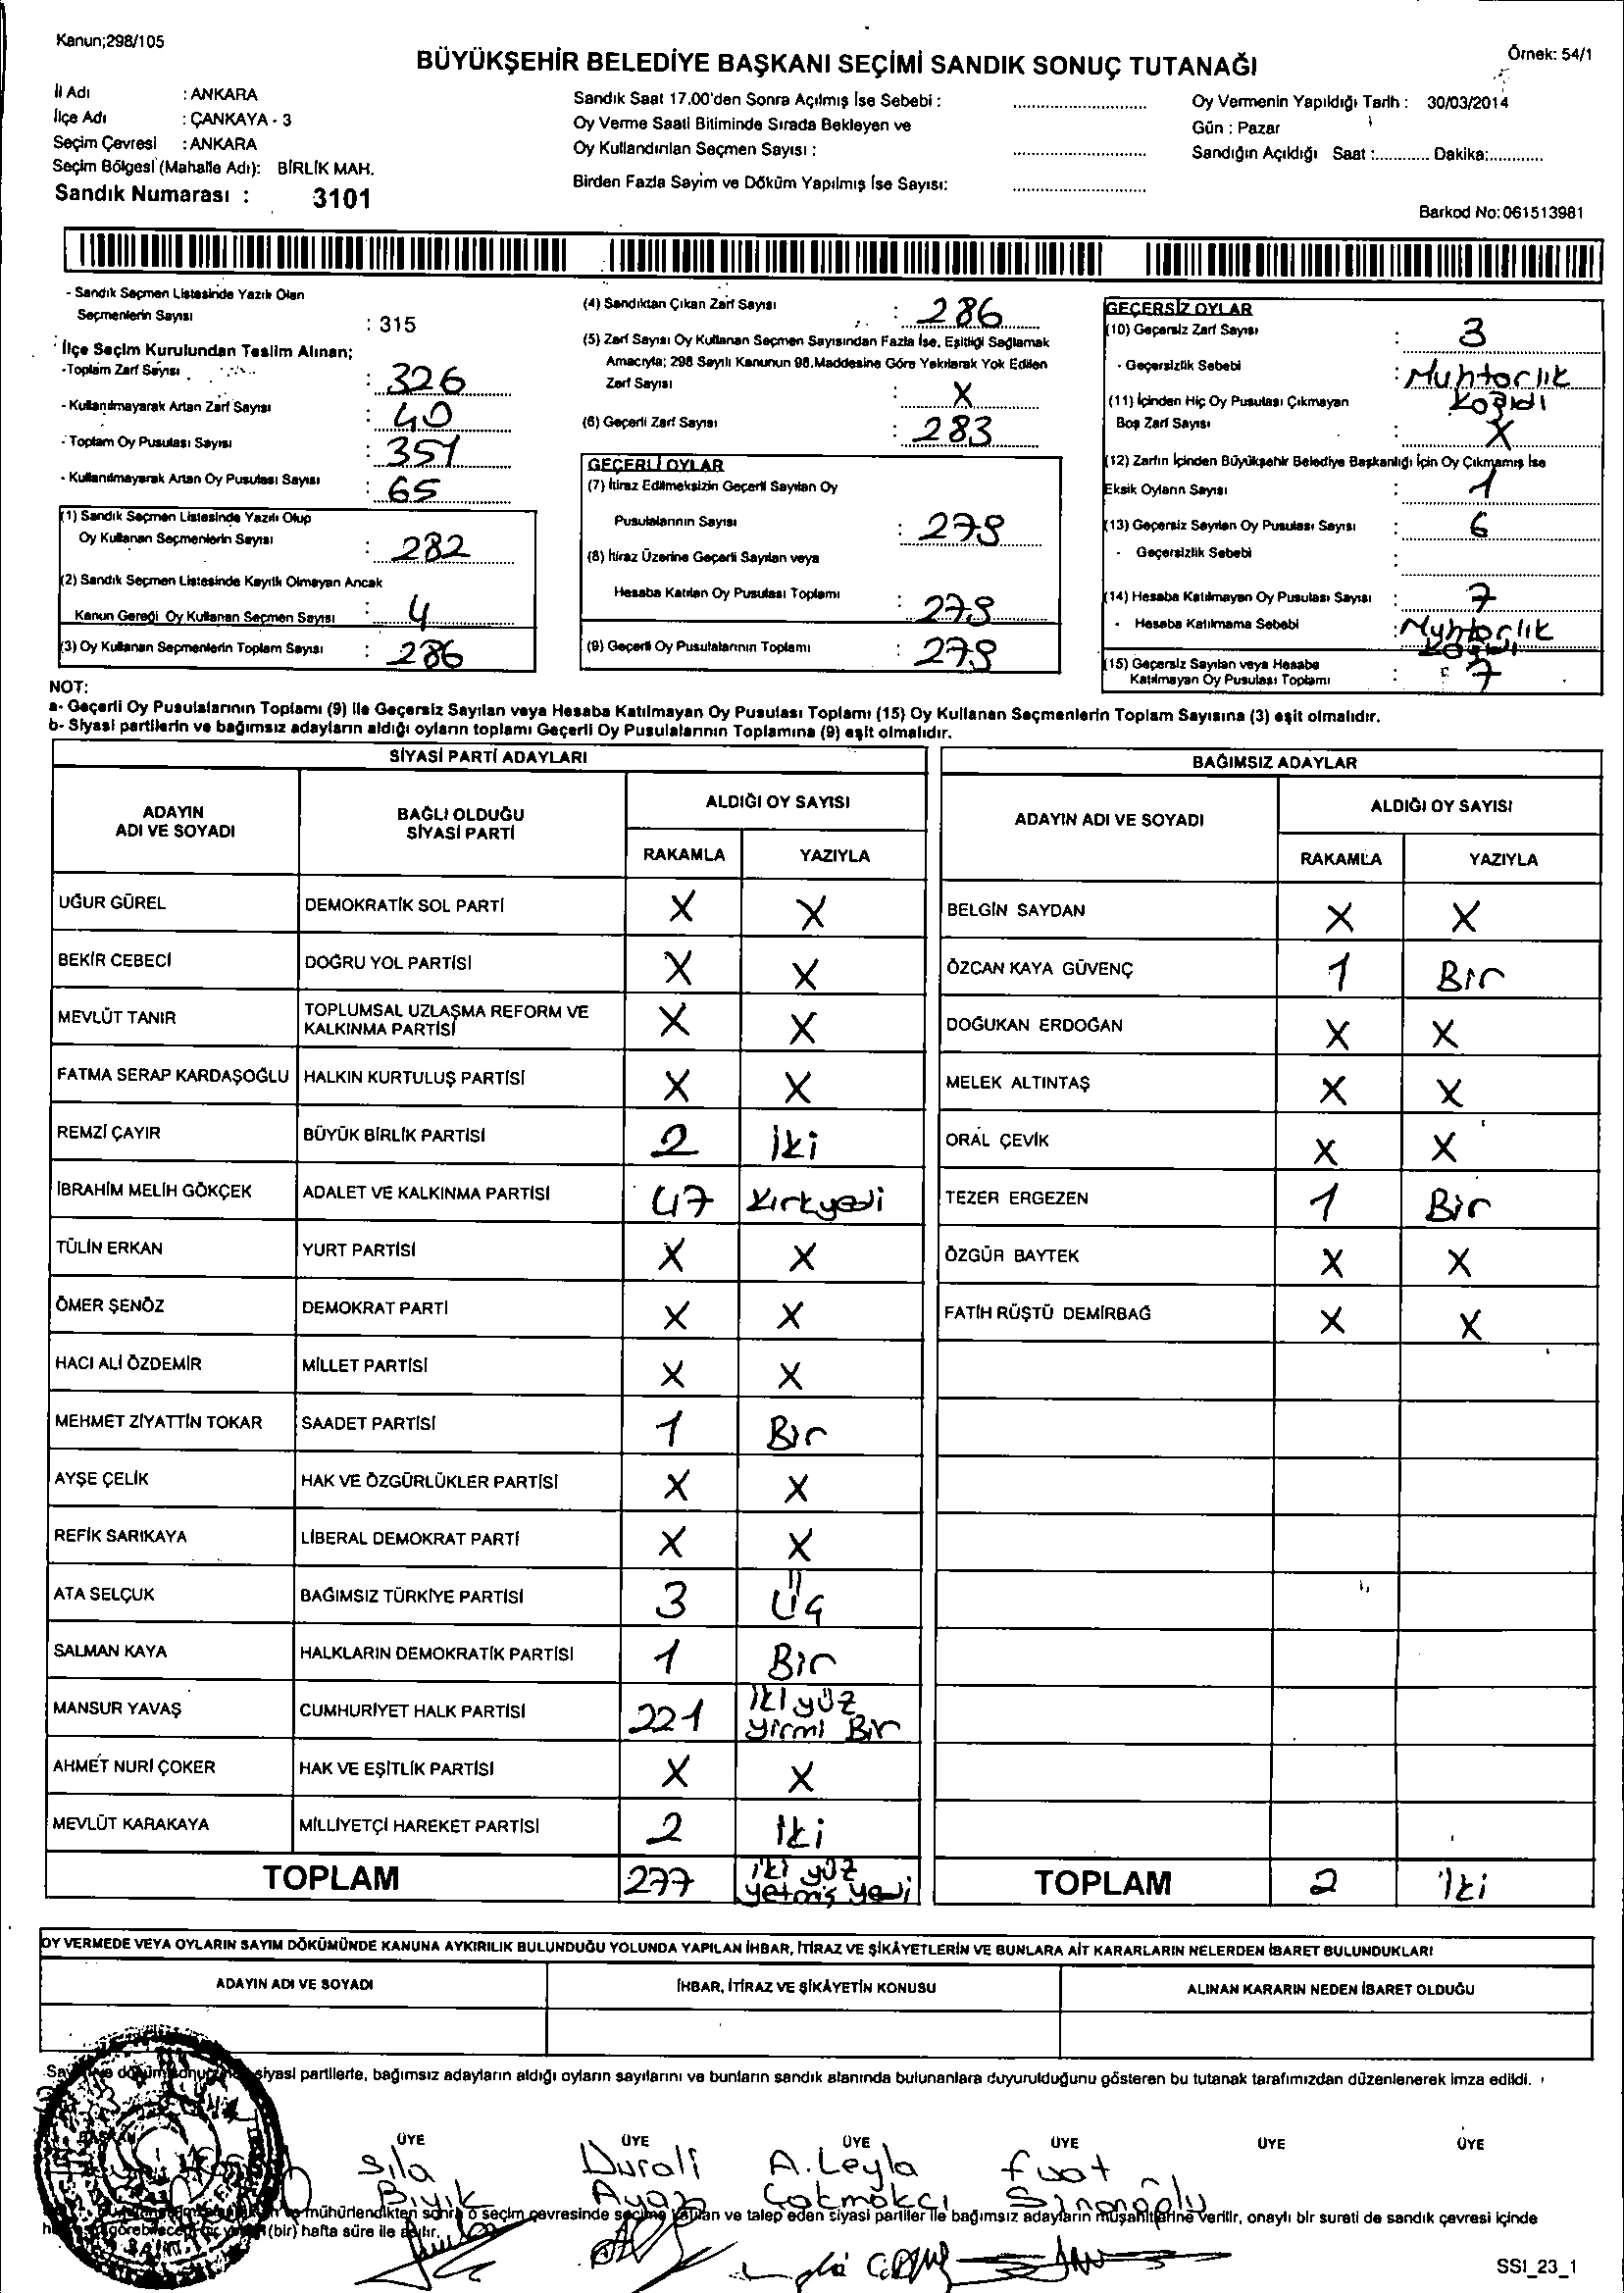 Kanun;298/105
BÜYÜKŞEHİR BELEDİYE BAŞKANI SEÇİMİ SANDIK SONUÇ TUTANAĞI
Örnek: 54/1
İl Adı : ANKARA
İlçe Adı : ÇANKAYA - 3
Seçim Çevresi : ANKARA
Seçim Bölgesi (Mahalle Adı): BİRLİK MAH.
Sandık Numarası : 3101
Sandık Saat 17.00'den Sonra Açılmış İse Sebebi :
Oy Verme Saati Bitiminde Sırada Bekleyen ve
Oy Kullandırılan Seçmen Sayısı :
Birden Fazla Sayim ve Döküm Yapılmış İse Sayısı:
Oy Vermenin Yapıldığı Tarih : 30/03/2014
Gün : Pazar
Sandığın Açıldığı Saat :............ Dakika:............
Barkod No: 061513981
- Sandık Seçmen Listesinde Yazılı Olan
Seçmenlerin Sayısı : 315
İlçe Seçim Kurulundan Teslim Alınan;
-Toplam Zarf Sayısı : 326
- Kullanılmayarak Artan Zarf Sayısı : 40
- Toplam Oy Pusulası Sayısı : 351
- Kullanılmayarak Artan Oy Pusulası Sayısı : 65
(1) Sandık Seçmen Listesinde Yazılı Olup
Oy Kullanan Seçmenlerin Sayısı : 282
(2) Sandık Seçmen Listesinde Kayıtlı Olmayan Ancak
Kanun Gereği Oy Kullanan Seçmen Sayısı : 4
(3) Oy Kullanan Seçmenlerin Toplam Sayısı : 286
(4) Sandıktan Çıkan Zarf Sayısı : 286
(5) Zarf Sayısı Oy Kullanan Seçmen Sayısından Fazla İse, Eşitliği Sağlamak
Amacıyla; 298 Sayılı Kanunun 98.Maddesine Göre Yakılarak Yok Edilen
Zarf Sayısı : X
(6) Geçerli Zarf Sayısı : 283
GEÇERLİ OYLAR
(7) İtiraz Edilmeksizin Geçerli Sayılan Oy
Pusulalarının Sayısı : 279
(8) İtiraz Üzerine Geçerli Sayılan veya
Hesaba Katılan Oy Pusulası Toplamı : 279
(9) Geçerli Oy Pusulalarının Toplamı : 279
GEÇERSİZ OYLAR
(10) Geçersiz Zarf Sayısı : 3
- Geçersizlik Sebebi : Muhtarlık
Kağıdı
(11) İçinden Hiç Oy Pusulası Çıkmayan
Boş Zarf Sayısı : X
(12) Zarfın İçinden Büyükşehir Belediye Başkanlığı İçin Oy Çıkmamış İse
Eksik Oyların Sayısı : 1
(13) Geçersiz Sayılan Oy Pusulası Sayısı : 6
- Geçersizlik Sebebi :
(14) Hesaba Katılmayan Oy Pusulası Sayısı : 7
- Hesaba Katılmama Sebebi : Muhtarlık
Kağıdı
(15) Geçersiz Sayılan veya Hesaba
Katılmayan Oy Pusulası Toplamı : 7
NOT:
a- Geçerli Oy Pusulalarının Toplamı (9) ile Geçersiz Sayılan veya Hesaba Katılmayan Oy Pusulası Toplamı (15) Oy Kullanan Seçmenlerin Toplam Sayısına (3) eşit olmalıdır.
b- Siyasi partilerin ve bağımsız adayların aldığı oyların toplamı Geçerli Oy Pusulalarının Toplamına (9) eşit olmalıdır.
SİYASİ PARTİ ADAYLARI
ADAYIN ADI VE SOYADI
BAĞLI OLDUĞU SİYASİ PARTİ
ALDIĞI OY SAYISI
RAKAMLA YAZIYLA
UĞUR GÜREL DEMOKRATİK SOL PARTİ X X
BEKİR CEBECİ DOĞRU YOL PARTİSİ X X
MEVLÜT TANIR TOPLUMSAL UZLAŞMA REFORM VE KALKINMA PARTİSİ X X
FATMA SERAP KARDAŞOĞLU HALKIN KURTULUŞ PARTİSİ X X
REMZİ ÇAYIR BÜYÜK BİRLİK PARTİSİ 2 İki
İBRAHİM MELİH GÖKÇEK ADALET VE KALKINMA PARTİSİ 47 Kırkyedi
TÜLİN ERKAN YURT PARTİSİ X X
ÖMER ŞENÖZ DEMOKRAT PARTİ X X
HACI ALİ ÖZDEMİR MİLLET PARTİSİ X X
MEHMET ZİYATTİN TOKAR SAADET PARTİSİ 1 Bir
AYŞE ÇELİK HAK VE ÖZGÜRLÜKLER PARTİSİ X X
REFİK SARIKAYA LİBERAL DEMOKRAT PARTİ X X
ATA SELÇUK BAĞIMSIZ TÜRKİYE PARTİSİ 3 Üç
SALMAN KAYA HALKLARIN DEMOKRATİK PARTİSİ 1 Bir
MANSUR YAVAŞ CUMHURİYET HALK PARTİSİ 221 İki yüz yirmi Bir
AHMET NURİ ÇOKER HAK VE EŞİTLİK PARTİSİ X X
MEVLÜT KARAKAYA MİLLİYETÇİ HAREKET PARTİSİ 2 İki
TOPLAM 277 iki yüz yetmiş yedi
BAĞIMSIZ ADAYLAR
ADAYIN ADI VE SOYADI
ALDIĞI OY SAYISI
RAKAMLA YAZIYLA
BELGİN SAYDAN X X
ÖZCAN KAYA GÜVENÇ 1 Bir
DOĞUKAN ERDOĞAN X X
MELEK ALTINTAŞ X X
ORAL ÇEVİK X X
TEZER ERGEZEN 1 Bir
ÖZGÜR BAYTEK X X
FATİH RÜŞTÜ DEMİRBAĞ X X
TOPLAM 2 İki
OY VERMEDE VEYA OYLARIN SAYIM DÖKÜMÜNDE KANUNA AYKIRILIK BULUNDUĞU YOLUNDA YAPILAN İHBAR, İTİRAZ VE ŞİKÂYETLERİN VE BUNLARA AİT KARARLARIN NELERDEN İBARET BULUNDUKLARI
ADAYIN ADI VE SOYADI
İHBAR, İTİRAZ VE ŞİKÂYETİN KONUSU
ALINAN KARARIN NEDEN İBARET OLDUĞU
siyasi partilerle, bağımsız adayların aldığı oyların sayılarını ve bunların sandık alanında bulunanlara duyurulduğunu gösteren bu tutanak tarafımızdan düzenlenerek imza edildi.
BAŞKAN ÜYE ÜYE ÜYE ÜYE ÜYE ÜYE
Sıla Durali A.Leyla Fuat
Bıyık Ayaz Çakmakçı Sinanoğlu
mühürlendikten sonra o seçim çevresinde seçime katılan ve talep eden siyasi partiler ile bağımsız adayların müşahitlerine verilir, onaylı bir sureti de sandık çevresi içinde
(bir) hafta süre ile asılır.
SSI_23_1